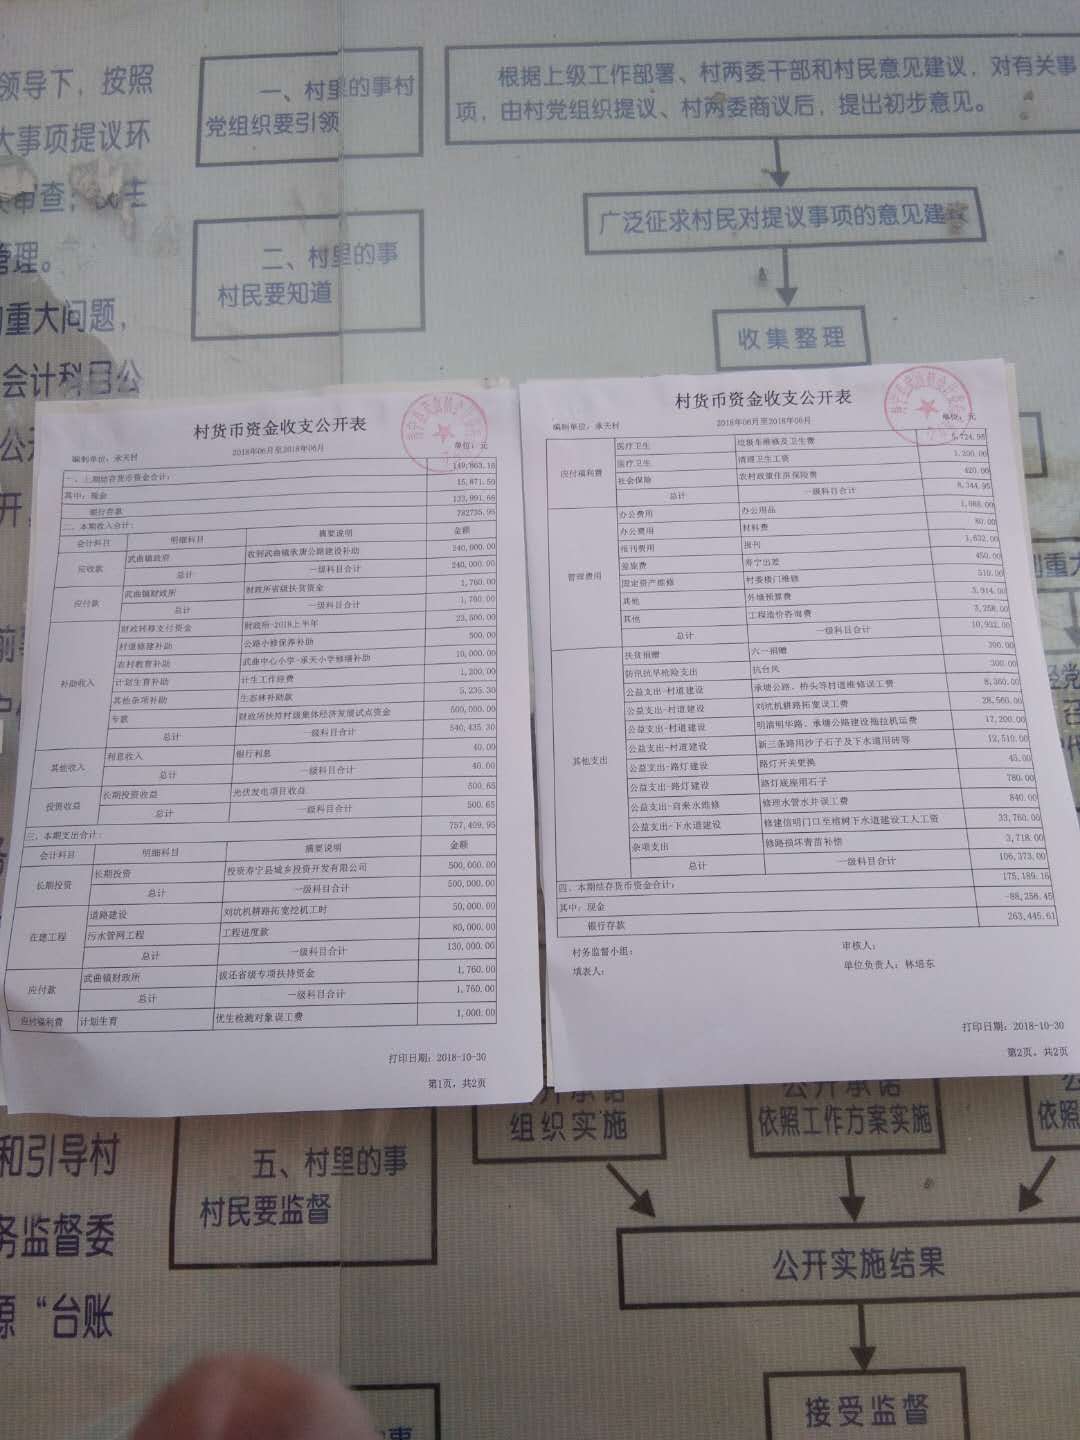 领导下，按照
大事项提议环
管理。
重大问题，
会计科目公
一、村里的事村
党组织要引领
二、村里的事
村民要知道
根据上级工作部署、村两委干部和村民意见建议，对有关事
项，由村党组织提议、村两委商议后，提出初步意见。
广泛征求村民对提议事项的意见建议
收集整理
村货币资金收支公开表
编制单位：承天村 2018年06月至2018年06月 单位：元
一、上期结存货币资金合计： 149,863.16
其中：现金 15,871.50
银行存款 133,991.66
二、本期收入合计： 782735.95
会计科目 明细科目 摘要说明 金额
应收款 武曲镇政府 收到武曲镇承唐公路建设补助 240,000.00
总计 一级科目合计 240,000.00
应付款 武曲镇财政所 财政所省级扶贫资金 1,760.00
总计 一级科目合计 1,760.00
补助收入 财政转移支付资金 财政所-2018上半年 23,500.00
村道修建补助 公路小修保养补助 500.00
农村教育补助 武曲中心小学-承天小学修缮补助 10,000.00
计划生育补助 计生工作经费 1,200.00
其他杂项补助 生态林补助款 5,235.30
专款 财政所扶持村级集体经济发展试点资金 500,000.00
总计 一级科目合计 540,435.30
其他收入 利息收入 银行利息 40.00
总计 一级科目合计 40.00
投资收益 长期投资收益 光伏发电项目收益 500.65
总计 一级科目合计 500.65
三、本期支出合计： 757,409.95
会计科目 明细科目 摘要说明 金额
长期投资 长期投资 投资寿宁县城乡投资开发有限公司 500,000.00
总计 一级科目合计 500,000.00
在建工程 道路建设 刘坑机耕路拓宽挖机工时 50,000.00
污水管网工程 工程进度款 80,000.00
总计 一级科目合计 130,000.00
应付款 武曲镇财政所 拨还省级专项扶持资金 1,760.00
总计 一级科目合计 1,760.00
应付福利费 计划生育 优生检测对象误工费 1,000.00
打印日期：2018-10-30
第1页，共2页
村货币资金收支公开表
编制单位：承天村 2018年06月至2018年06月 单位：元
应付福利费 医疗卫生 垃圾车维修及卫生费 5,724.95
医疗卫生 清理卫生工资 1,200.00
社会保险 农村政策住房保险费 420.00
总计 一级科目合计 8,344.95
管理费用 办公费用 办公用品 1,088.00
办公费用 材料费 80.00
报刊费用 报刊 1,632.00
差旅费 寿宁出差 450.00
固定资产维修 村委楼门维修 510.00
其他 外墙预算费 3,914.00
其他 工程造价咨询费 3,258.00
总计 一级科目合计 10,932.00
其他支出 扶贫捐赠 六一捐赠 300.00
防汛抗旱抢险支出 抗台风 300.00
公益支出-村道建设 承塘公路、桥头等村道维修误工费 8,360.00
公益支出-村道建设 刘坑机耕路拓宽误工费 28,560.00
公益支出-村道建设 明清明华路、承塘公路建设拖拉机运费 17,200.00
公益支出-村道建设 新三条路用沙子石子及下水道用砖等 12,510.00
公益支出-路灯建设 路灯开关更换 45.00
公益支出-路灯建设 路灯底座用石子 780.00
公益支出-自来水维修 修理水管水井误工费 840.00
公益支出-下水道建设 修建信明门口至榕树下水道建设工人工资 33,760.00
杂项支出 修路损坏青苗补偿 3,718.00
总计 一级科目合计 106,373.00
四、本期结存货币资金合计： 175,189.16
其中：现金 -88,256.45
银行存款 263,445.61
村务监督小组： 审核人：
填表人： 单位负责人：林培东
打印日期：2018-10-30
第2页，共2页
和引导村
务监督委
原“台账
五、村里的事
村民要监督
组织实施
公开承诺
依照工作方案实施
依照
公开实施结果
接受监督